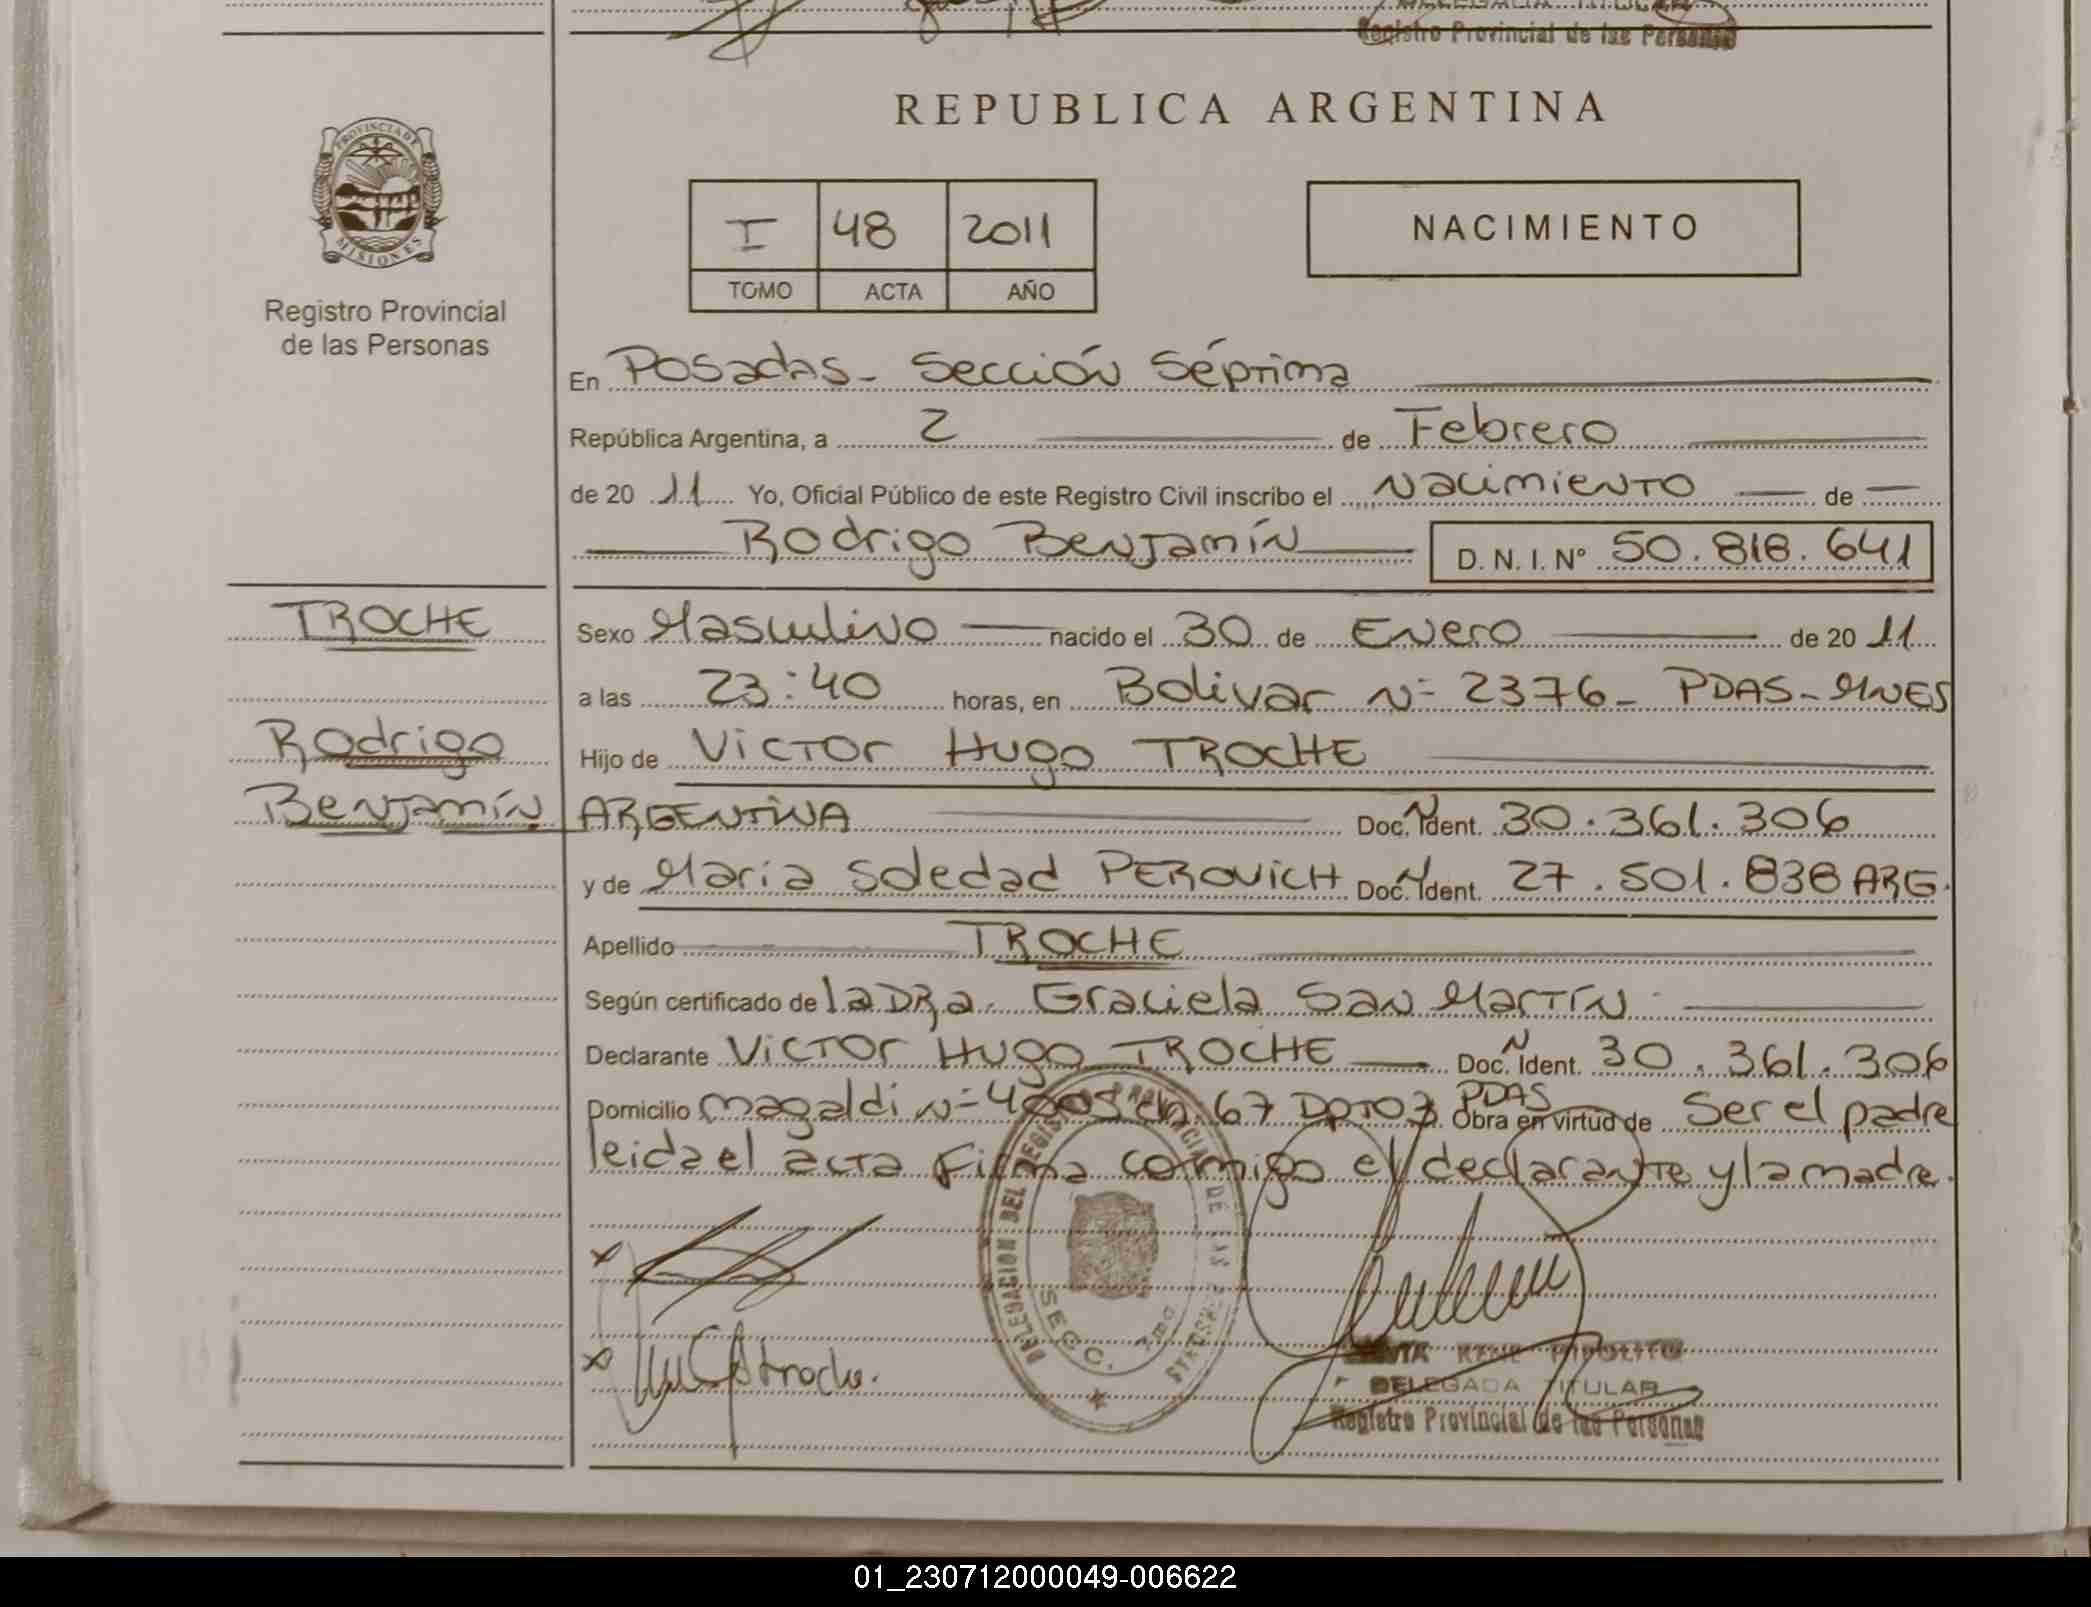 Registro Provincial de las Personas
REPUBLICA ARGENTINA
PROVINCIA DE MISIONES
Registro Provincial
de las Personas
I 48 2011
TOMO ACTA AÑO
NACIMIENTO
En Posadas - Sección Séptima
República Argentina, a 2 de Febrero
de 20 11 Yo, Oficial Público de este Registro Civil inscribo el Nacimiento de
Rodrigo Benjamín D. N. I. Nº 50.818.641
TROCHE
Rodrigo
Benjamín
Sexo Masculino nacido el 30 de Enero de 20 11
a las 23:40 horas, en Bolivar Nº 2376 - PDAS - MNES
Hijo de Victor Hugo TROCHE
ARGENTINA Doc. N Ident. 30.361.306
y de Maria Soledad PEROVICH Doc. N Ident. 27.501.838 ARG.
Apellido TROCHE
Según certificado de la DRa. Graciela San Martín
Declarante Victor Hugo TROCHE Doc. N Ident. 30.361.306
Domicilio Magaldi Nº 67 DPTO PDAS Obra en virtud de Ser el padre
leida el acta firma conmigo el declarante y la madre.
DELEGACION DEL REGISTRO PROVINCIAL DE LAS PERSONAS
SECC.
troche.
DELEGADA TITULAR
Registro Provincial de las Personas
01_230712000049-006622